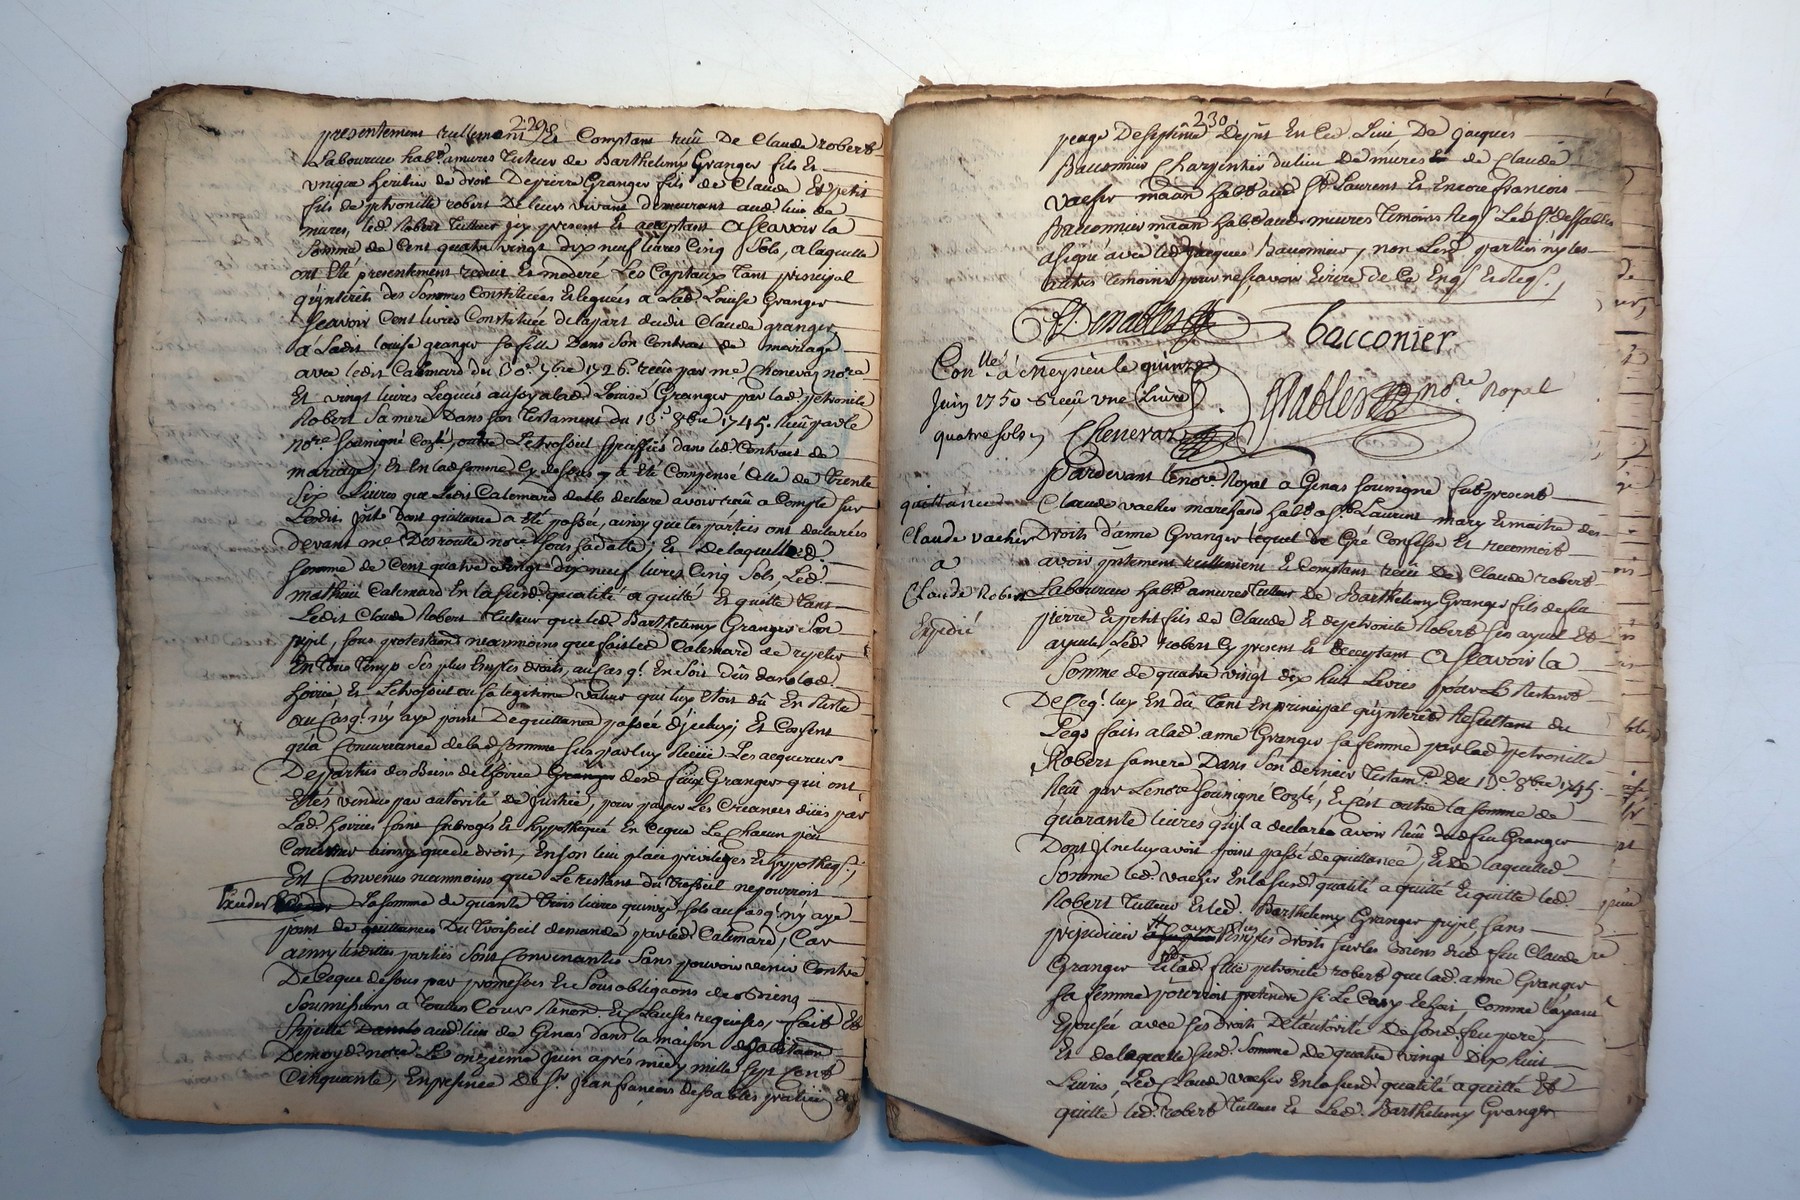 229
presentement reellement Et Comptant reçû De Claude robert
Laboureur hab.t a mures Tuteur de Barthelemy Granger fils Et
unique heritier de droit De pierre Granger fils de Claude Et petit
fils de petronille robert De leurs vivant demeurant aud. lieu de
mures, led. Robert Tutteur icy present Et acceptant A Scavoir la
Somme de Cent quatre vingt dix neuf livres Cinq Sols, a laquelle
ont Eté presentement reduit Et moderé Les Capitaux Tant principal
qu'interêts des Sommes Constituées Et leguées a Lad. Louise Granger
Scavoir Cent livres Constituée de la part dudit Claude granger,
a Ladite louise granger sa fille Dans Son Contrat de mariage
avec ledit Calemard du 30.e 7bre 1726. reçu par me Chenevaz no.re
Et vingt livres Legués aussy a lad. Louise Granger par lad. petronille
Robert Sa mere Dans Son Testament du 13.e 8bre 1745. Reçû par le
no.re Soussigné outre Le trossel Speciffiés dans led. Contrat de
mariage; Et En lad somme Cy dessus y a Eté Compensé Celle de Trente
Six Livres que Ledit Calemard a declaré avoir reçû a Compte Sur
dont quittance a Eté passée, ainsy que les parties ont declarées
devant me no.re Sous Sa datte; Et De laquelled.
Somme de Cent quatre vingt dix neuf livres Cinq Sols, Led.
mathieu Calemard En lasusd. qualité a quitté Et quitte Tant
Ledit Claude Robert Tuteur que led. Barthelemy Granger Son
pupil, sous protestations neanmoins que fait led Calemard de repeter
En Tous Temps Ses plus Amples droits, au Cas q.e En Soit Dûs dans lad.
hoirie Et Le trossel ou sa legitime valeur qui luy Etoit dû En Reste
au Cas q.e n'y aye point De quittance passée d'iceluy; Et Consent
qu'a Concurrance de lad Somme Sus par luy Reçüe Les acquereurs
De partie des Biens de l'hoirie Granger dud feüx Granger qui ont
Etés vendu par autorité de Justice, pour payer Les Creances düës par
Lad. hoirie soint Subrogés Et hypothequé En Ceque Le Chacun peu
Concerner ainsy que de droit, En son lieu place privileges Et hypotheq.s;
Est Convenus neanmoins que Le restant du Trosseil ne pourroit
Exceder La Somme de quarante Trois livres quinze Sols au Cas q.e n'y aye
point de quittances Du Trosseil demandé par led. Calemard, Car
ainsy lesdittes parties Sont Convenantés Sans pouvoir venir Contre
De Ceque dessus par promesses Et Sous obligaõns de Biens
Soumissions a Toutes Cours Renon. Et Clauses requises, fait Et
aud lieu de Genas dans la maison d'habitaõn
De moyd. no.re Le onzieme Juin aprés midy mille Sept Cent
Cinquante, En presence De Sr. Jean françois Dessables praticien
230
peage De Septême De Jacques
Bacconnier Charpentier du lieu De mures Et de Claude
vacher maçon hab.t aud St. Laurent Et Encore françois
Bacconnier maçon hab.t aud. mures Temoins Req.s Led. Sr. dessables
a signé avec led. Jacques Bacconnier, non Led. parties ny les
autres Temoins pour ne Scavoir Ecrire de Ce Enq.s Et Req.s,
Dessables
bacconier
Con.llé a Meysieu le quinze
Juin 1750 Et reçu une Livre
quatre sols
Chenevaz
Stables no.re Royal
Pardevant le no.re Royal a Genas Soussigné fut present
quittance
Claude vacher
a
Claude Robert
Expedié
Claude vacher marchand hab.t a St. Laurent mary Et maitre des
Droits d'anne Granger lequel De Gré Confesse Et reconnoit
avoir presentement reellement Et Comptant reçû De Claude robert
Laboureur hab.t a mures Tutteur De Barthelemy Granger fils de feu
pierre Et petit fils de Claude Et de petronille Robert Ses ayeul Et
ayeule Led. robert Cy present Et acceptant A Scavoir la
Somme de quatre vingt dix huit Livres pour Le Restant
De Ceq.e luy En dû Tant En principal qu'interêt Resultant du
Legs faits a lad anne Granger sa femme par lad petronille
Robert Sa mere Dans Son dernier Testam.t Du 13.e 8bre 1745.
Reçû par Le no.re Soussigné Et c'est outre la somme de
quarante livres qu'il a declaré avoir Reçû dud feu Granger
Dont il ne luy avoit point passé de quittance, Et De laquelled
Somme led. vacher En lasusd. qualité a quitté Et quitte led.
Robert Tutteur Et led. Barthelemy Granger pupil, sans
prejudice aux plus amples droits Sur les Biens dud feu Claude
Granger Et lad. feüe petronille robert que lad. anne Granger
sa femme pourroit pretendre si Le Casy Echoi, Comme l'ayant
Epousée avec ses droits De l'autorité de fond. feu pere,
Et de laquelle susd. Somme de quatre vingt Dix huit
Livres, Led Claude vacher En lasusd. qualité a quitté Et
quitte led. robert Tutteur Et Led. Barthelemy Granger